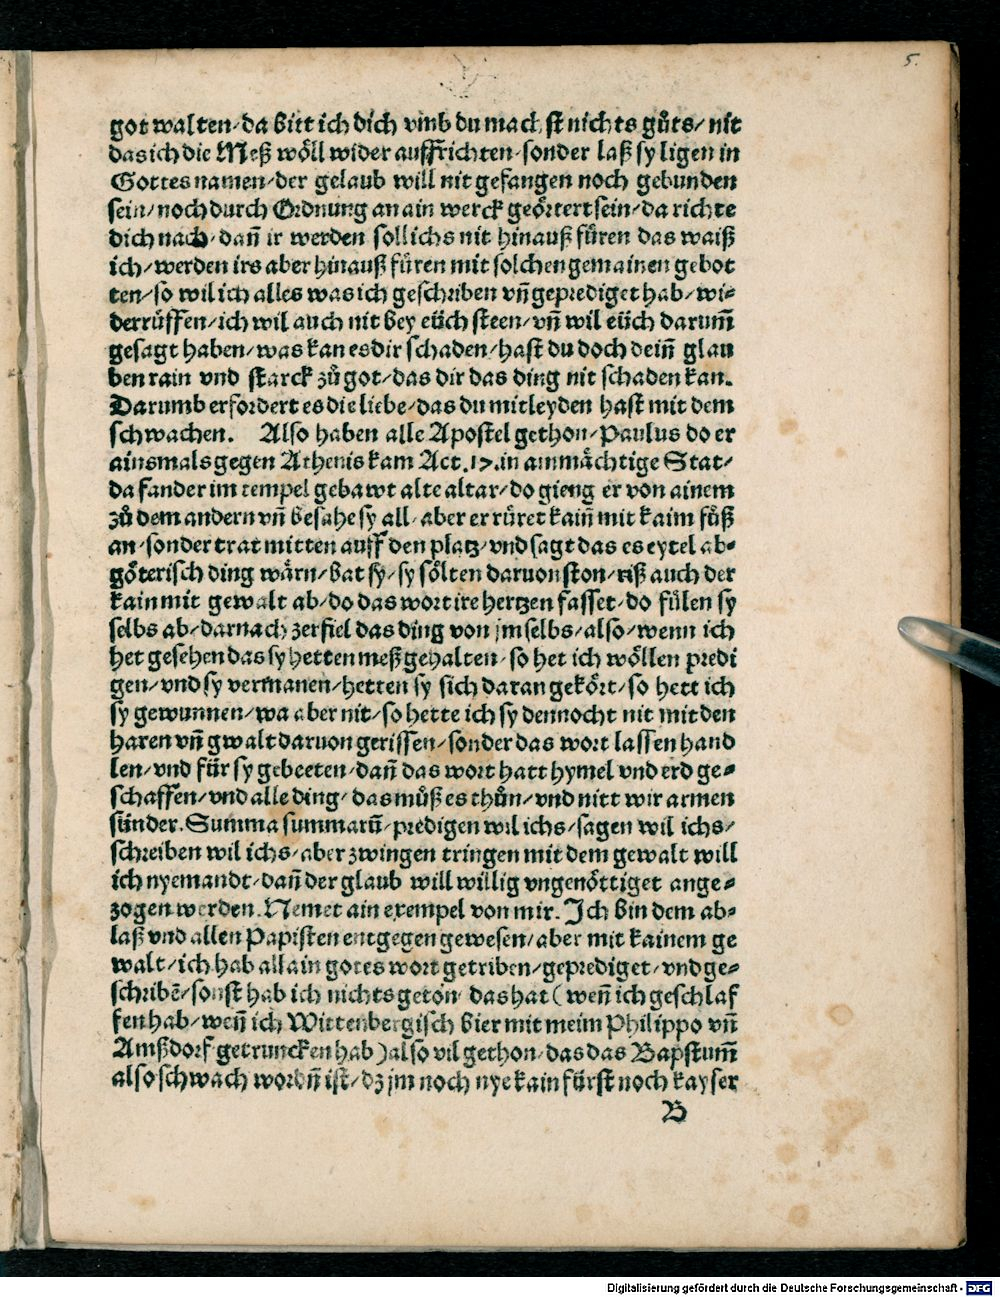 5.
got walten/ da bitt ich dich vmb du machst nichts gůts/ nit
das ich die Meß wöll wider auffrichten/ sonder laß sy ligen in
Gottes namen/ der gelaub will nit gefangen noch gebunden
sein/ noch durch Ordnung an ain werck geörtert sein/ da richte
dich nach/ dañ ir werden soll ichs nit hinauß füren das waiß
ich/ werden irs aber hinauß füren mit solchen gemainen gebot
ten/ so wil ich alles was ich geschriben vñ geprediget hab/ wi⸗
derrůffen/ ich wil auch nit bey eüch steen/ vñ wil eüch darum̃
gesagt haben/ was kan es dir schaden/ hast du doch deiñ glau
ben rain vnd starck zů got/ das dir das ding nit schaden kan.
Darumb erfordert es die liebe/ das du mitleyden hast mit dem
schwachen. Also haben alle Apostel gethon/ Paulus do er
ainsmals gegen Athenis kam Act.17.in ain mächtige Stat/
da fand er im tempel gebawt alte altar/ do gieng er von ainem
zů dem andern vñ besahe sy all/ aber er rüret kaiñ mit kaim fůß
an/ sonder trat mitten auff den platz/ vnd sagt das es eytel ab⸗
göterisch ding wärn/ bat sy/ sy sölten daruon ston/ riß auch der
kain mit gewalt ab/ do das wort ire hertzen fasset/ do fülen sy
selbs ab/ darnach zerfiel das ding von jm selbs/ also/ wenn ich
het gesehen das sy hetten meß gehalten/ so het ich wöllen predi
gen/ vnd sy vermanen/ hetten sy sich daran gekört/ so hett ich
sy gewunnen/ wa aber nit/ so hette ich sy dennocht nit mit den
haren vñ gwalt daruon gerissen/ sonder das wort lassen hand
len/ vnd für sy gebeeten/ dañ das wort hatt hymel vnd erd ge⸗
schaffen/ vnd alle ding/ das můß es thůn/ vnd nitt wir armen
sünder. Summa summarũ/ predigen wil ichs/ sagen wil ichs/
schreiben wil ichs/ aber zwingen tringen mit dem gewalt will
ich nyemandt/ dañ der glaub will willig vngenöttiget ange⸗
zogen werden. Nemet ain exempel von mir. Ich bin dem ab⸗
laß vnd allen Papisten entgegen gewesen/ aber mit kainem ge
walt/ ich hab allain gotes wort getriben/ geprediget/ vnd ge⸗
schribẽ/ sonst hab ich nichts getön/ das hat (weñ ich geschlaf
fen hab/ weñ ich Wittenbergisch bier mit meim Philippo vñ
Amßdorf getruncken hab) also vil gethon/ das das Bapstum̃
also schwach wordñ ist/ dz jm noch nye kain fürst noch kayser
B
Digitalisierung gefördert durch die Deutsche Forschungsgemeinschaft - DFG